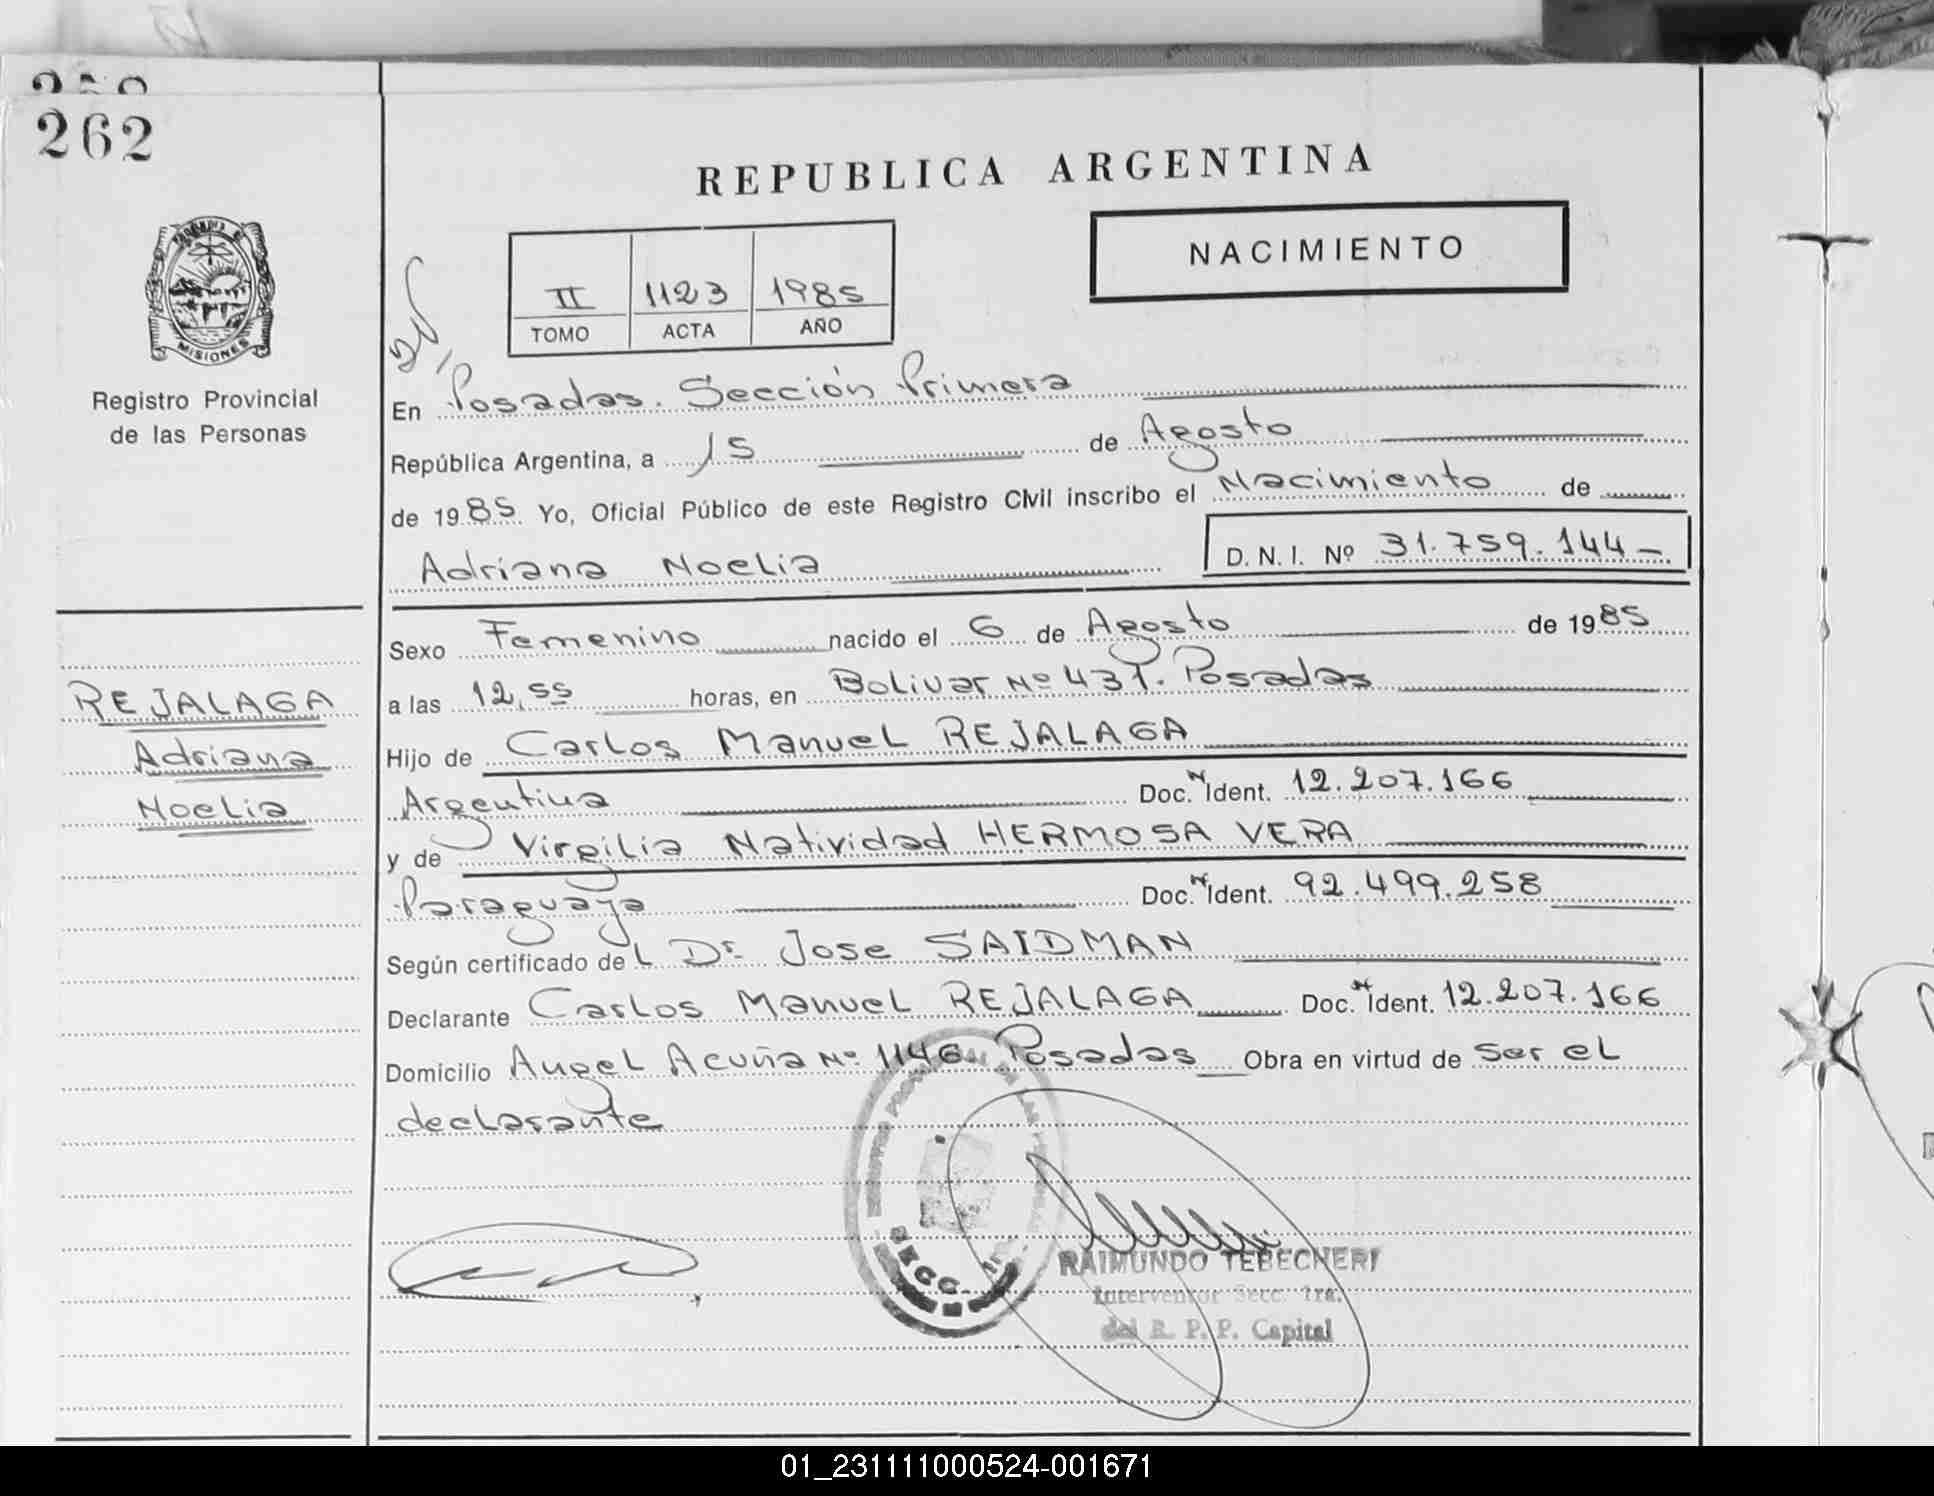 262
REPUBLICA ARGENTINA
NACIMIENTO
II 1123 1985
TOMO ACTA AÑO
MISIONES
Registro Provincial
de las Personas
En Posadas. Sección Primera
República Argentina, a 15 de Agosto
de 1985 Yo, Oficial Público de este Registro Civil inscribo el Nacimiento de
Adriana Noelia D. N. I. Nº 31.759.144-
Sexo Femenino nacido el 6 de Agosto de 1985
a las 12,55 horas, en Bolivar Nº 431. Posadas
Hijo de Carlos Manuel REJALAGA
Argentina Doc. Ident. 12.207.166
y de Virgilia Natividad HERMOSA VERA
Paraguaya Doc. Ident. 92.499.258
Según certificado del Dr. Jose SAIDMAN
Declarante Carlos Manuel REJALAGA Doc. Ident. 12.207.166
Domicilio Angel Acuña Nº 1146 Posadas Obra en virtud de ser el
declarante
REJALAGA
Adriana
Noelia
SECC. 1ª
RAIMUNDO TEBECHERI
Interventor Secc. 1ra.
del R. P. P. Capital
01_231111000524-001671